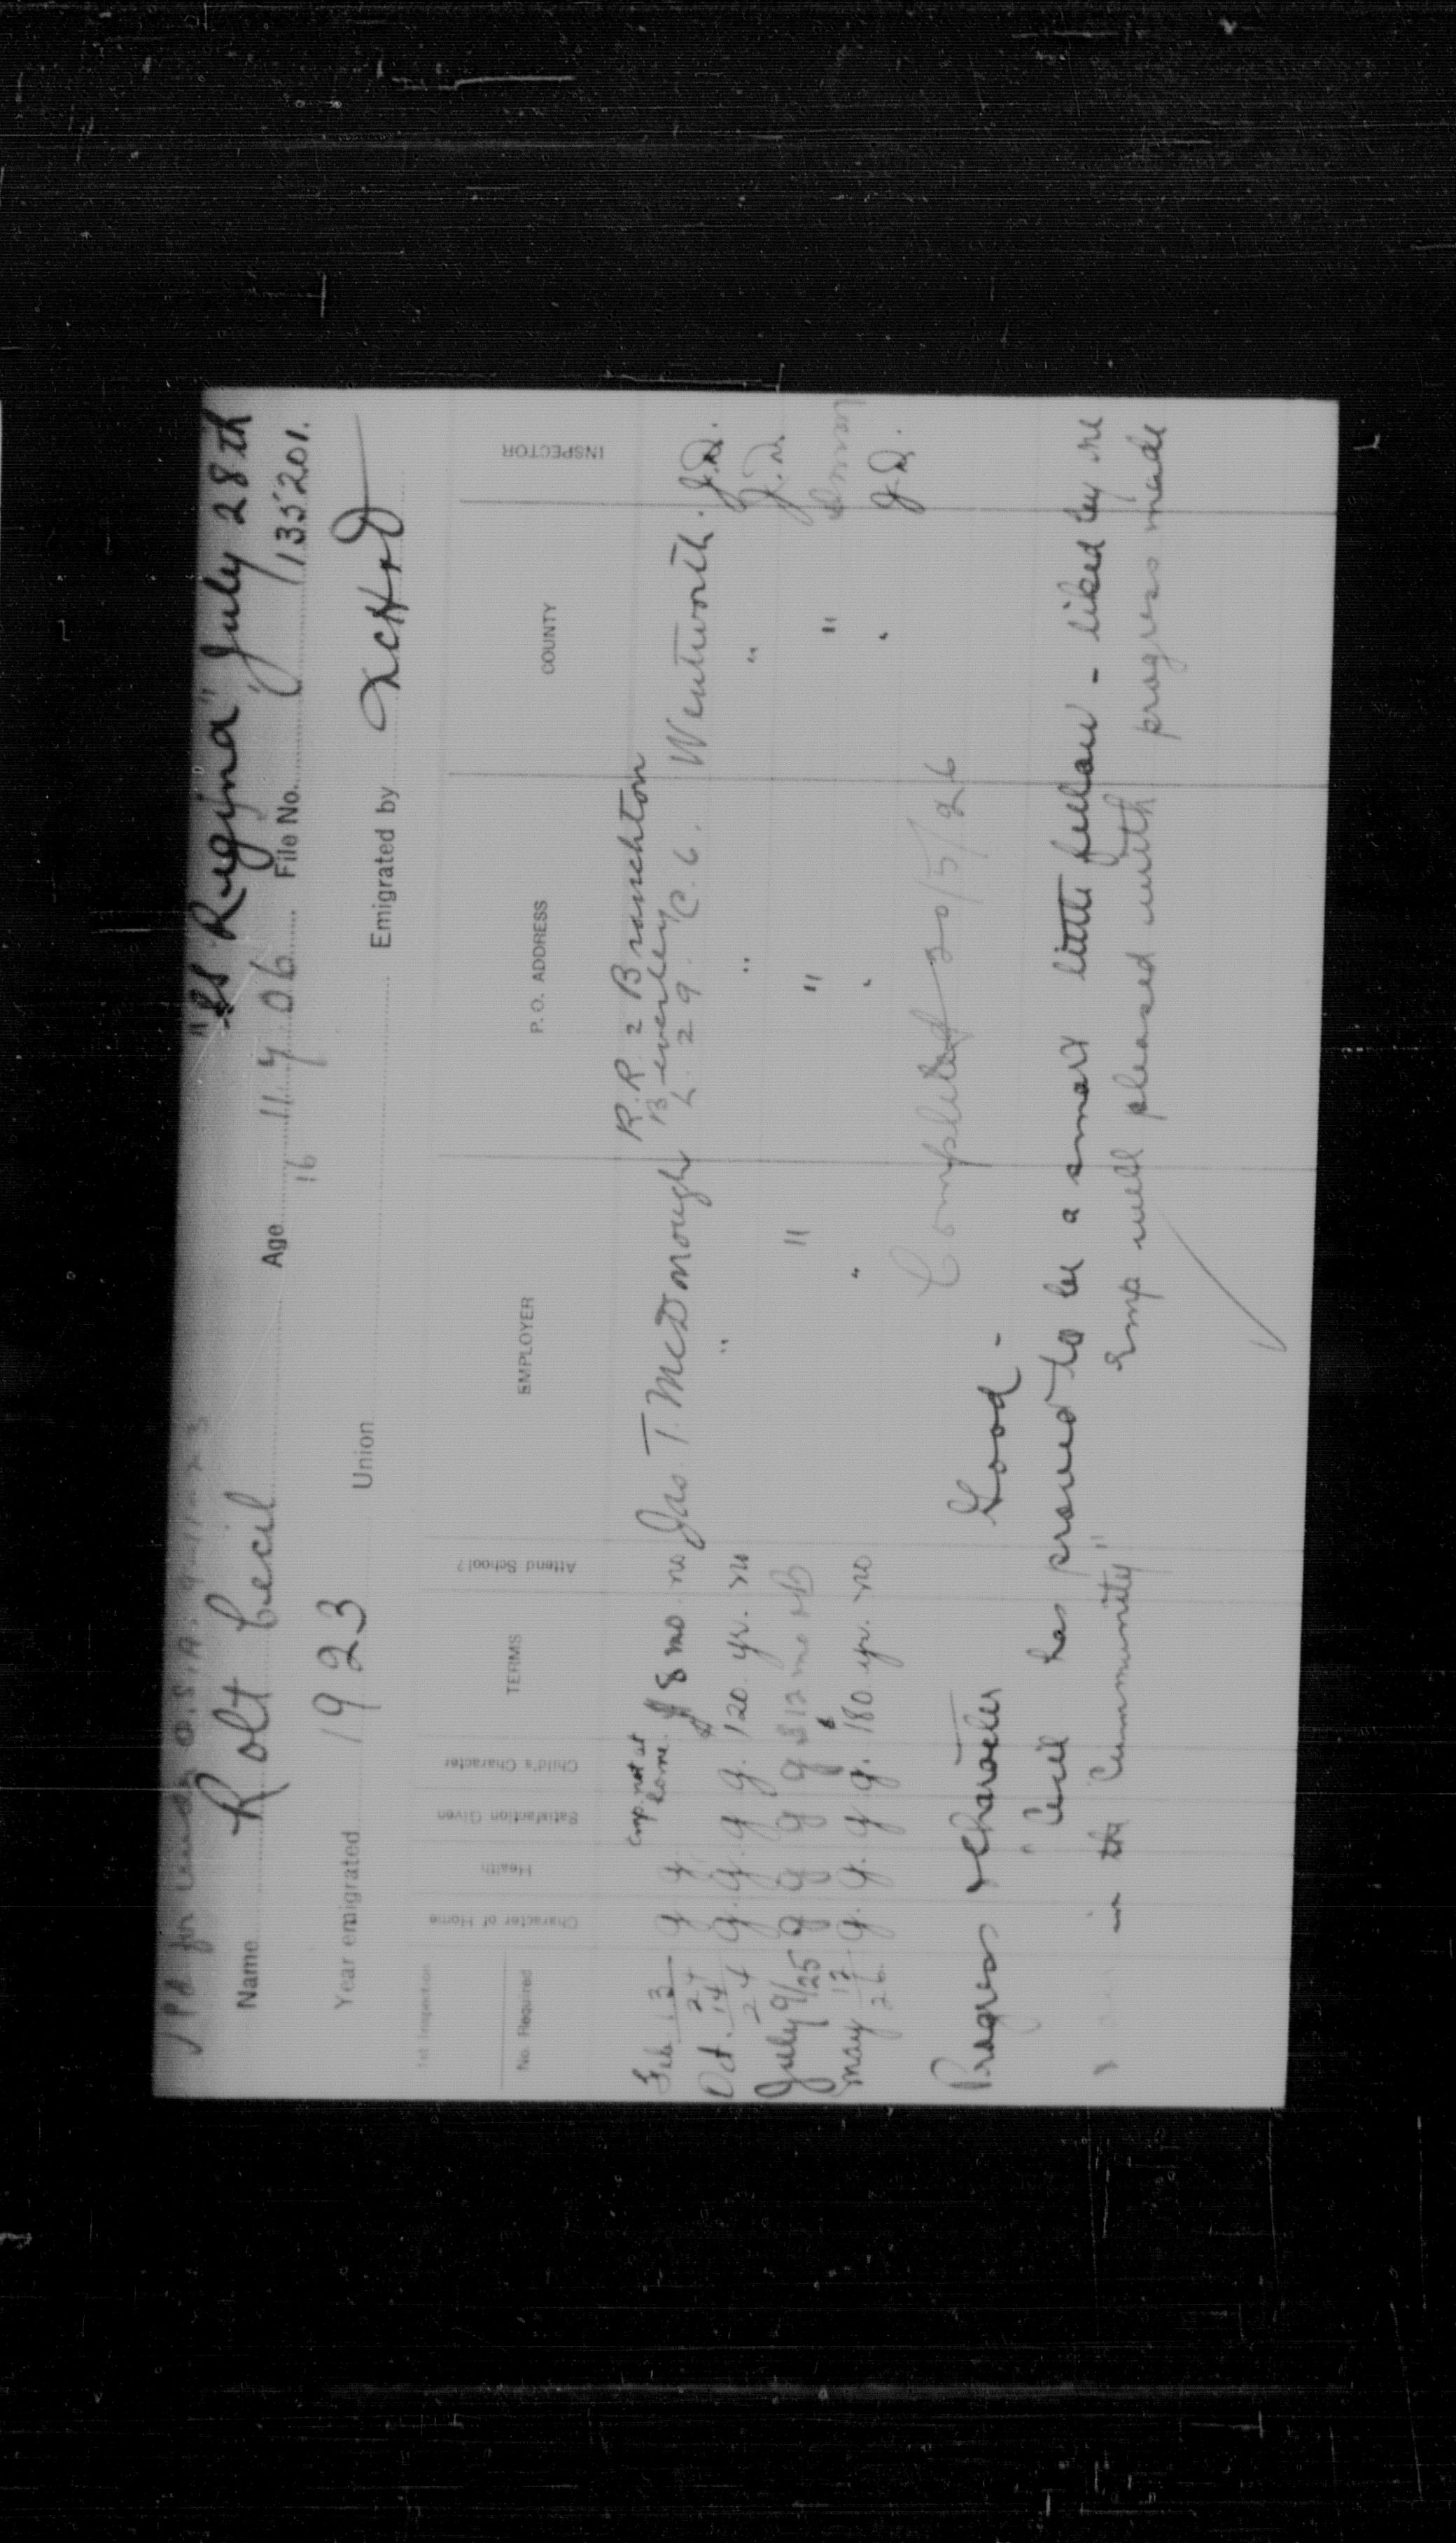 "SS Regina" July 28th
Pd for O.S.A. 9-11-23
Name Rolt Cecil Age 11 7 06 File No. 135201.
16
Year emigrated 1923 Union Emigrated by
1st Inspection
No. Required Character of Home Health Satisfaction Given Child's Character TERMS Attend School? EMPLOYER P. O. ADDRESS COUNTY INSPECTOR
R.R. 2 Branchton
Emp. not at home. Beverley
Feb. 13/24 g g $8 mo. no Jas. T. McDonough L. 29. C. 6. Wentworth. J.D.
Oct. 14/24 g. g. g g. $120. yr. no " " " J.D.
July 9/25 g g g g $12 mo " " "
May 12/26 g. g. g g. $180. yr. no " " " J.D.
Completed 20/5/26
Progress & Character Good -
"Cecil has proved to be a smart little fellow - liked by
in the Community" Emp well pleased with progress made